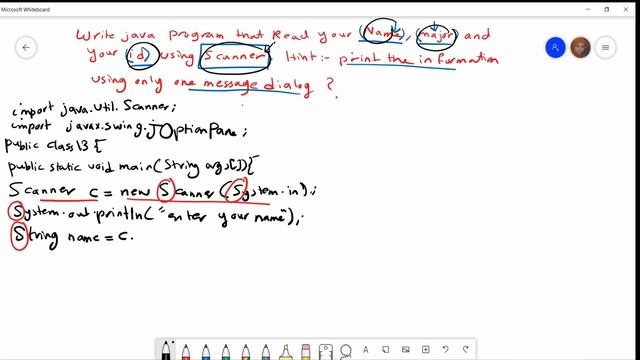 Microsoft Whiteboard
Write java program that Read your (Name), (major) and
your (id) using Scanner Hint:- print the information
using only one message dialog ?
import java.util.Scanner;
import javax.swing.jOptionPane;
Public class l3 {
public static void main(String args[]){
Scanner c = new Scanner(System.in);
System.out.println("enter your name");
String name = c.